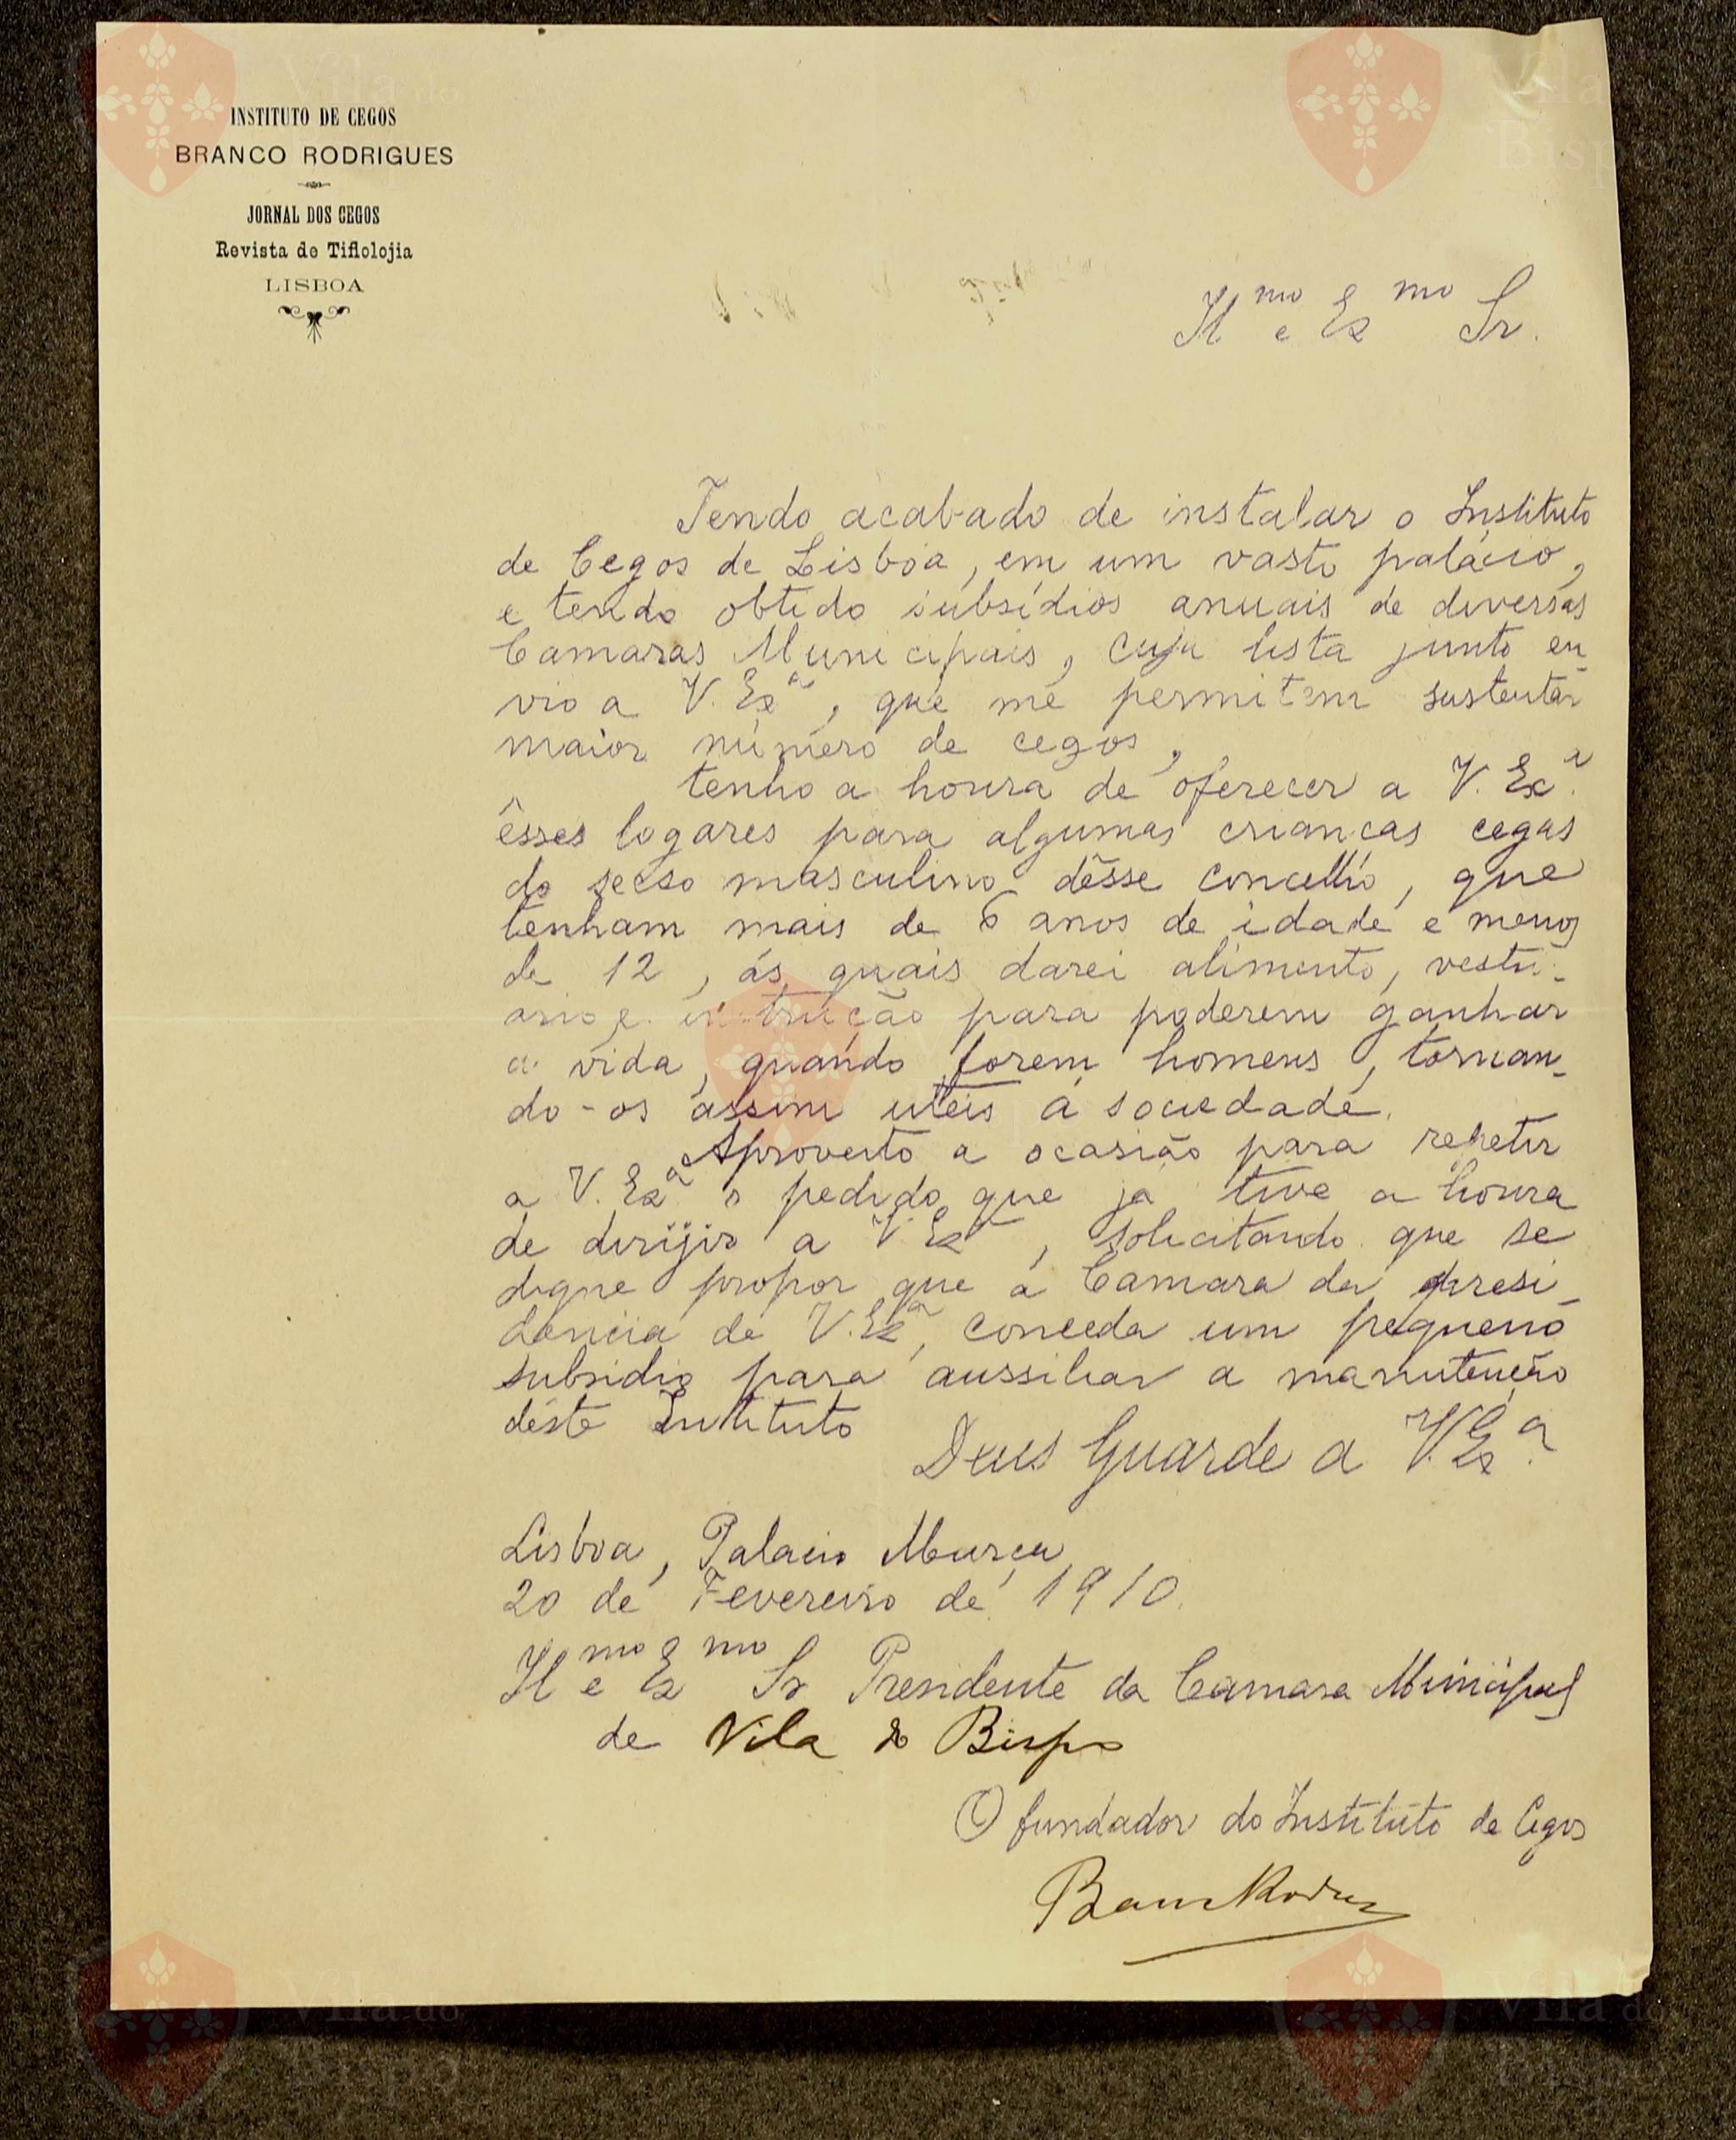 INSTITUTO DE CEGOS
BRANCO RODRIGUES
JORNAL DOS CEGOS
Revista de Tiflolojia
LISBOA
Il mo e Ex mo Sr.
Tendo acabado de instalar o Instituto
de Cegos de Lisboa, em um vasto palácio,
e tendo obtido subsídios anuais de diversas
Camaras Municipais, cuja lista junto en-
vio a V. Exª, que me permitem sustentar
maior número de cegos,
tenho a honra de oferecer a V. Exª.
êsses logares para algumas crianças cegas
do secso masculino dêsse concelho, que
tenham mais de 6 anos de idade e menos
de 12, ás quais darei alimento, vestu-
ario e instrução para poderem ganhar
a vida, quando forem homens, tornan-
do-os assim uteis á sociedade.
Aproveito a ocasião para repetir
a V. Exª o pedido que ja tive a honra
de dirijir a V. Exª, solicitando que se
digne propor que a Camara da presi-
dencia de V. Exª, conceda um pequeno
subsidio para aussiliar a manutenção
déste Instituto
Deus Guarde a V. Exª.
Lisboa, Palacio Murça,
20 de Fevereiro de 1910.
Il mo e Ex mo Sr Presidente da Camara Municipal
de Vila do Bispo
O fundador do Instituto de Cegos
Branco Rodrigues
Vila do
Bispo
Vila do
Bispo
Vila do
Bispo
Vila do
Bispo